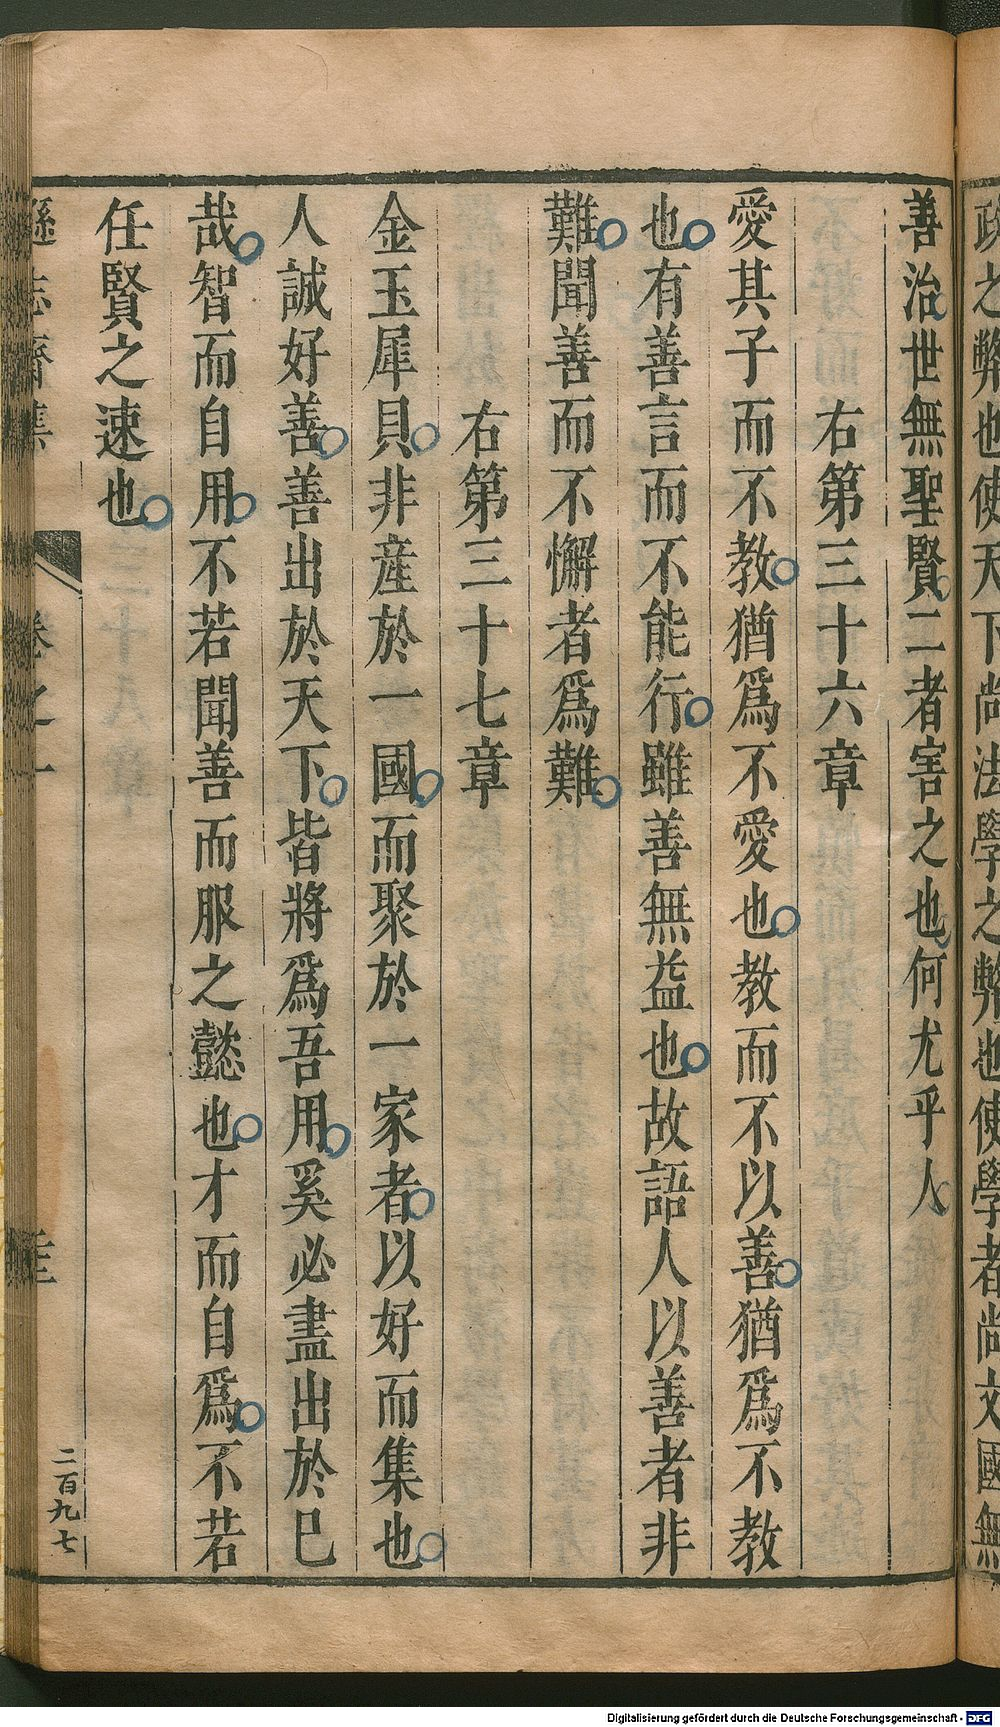 政之弊也使天下尚法學之弊也使學者尚文國無
善治世無聖賢二者害之也何尤乎人
右第三十六章
愛其子而不教猶爲不愛也教而不以善猶爲不教
也有善言而不能行雖善無益也故語人以善者非
難聞善而不懈者爲難
右第三十七章
金玉犀貝非產於一國而聚於一家者以好而集也
人誠好善善出於天下皆將爲吾用奚必盡出於已
哉智而自用不若聞善而服之懿也才而自爲不若
任賢之速也
遜志齋集
卷之一
二百九七
Digitalisierung gefördert durch die Deutsche Forschungsgemeinschaft - DFG